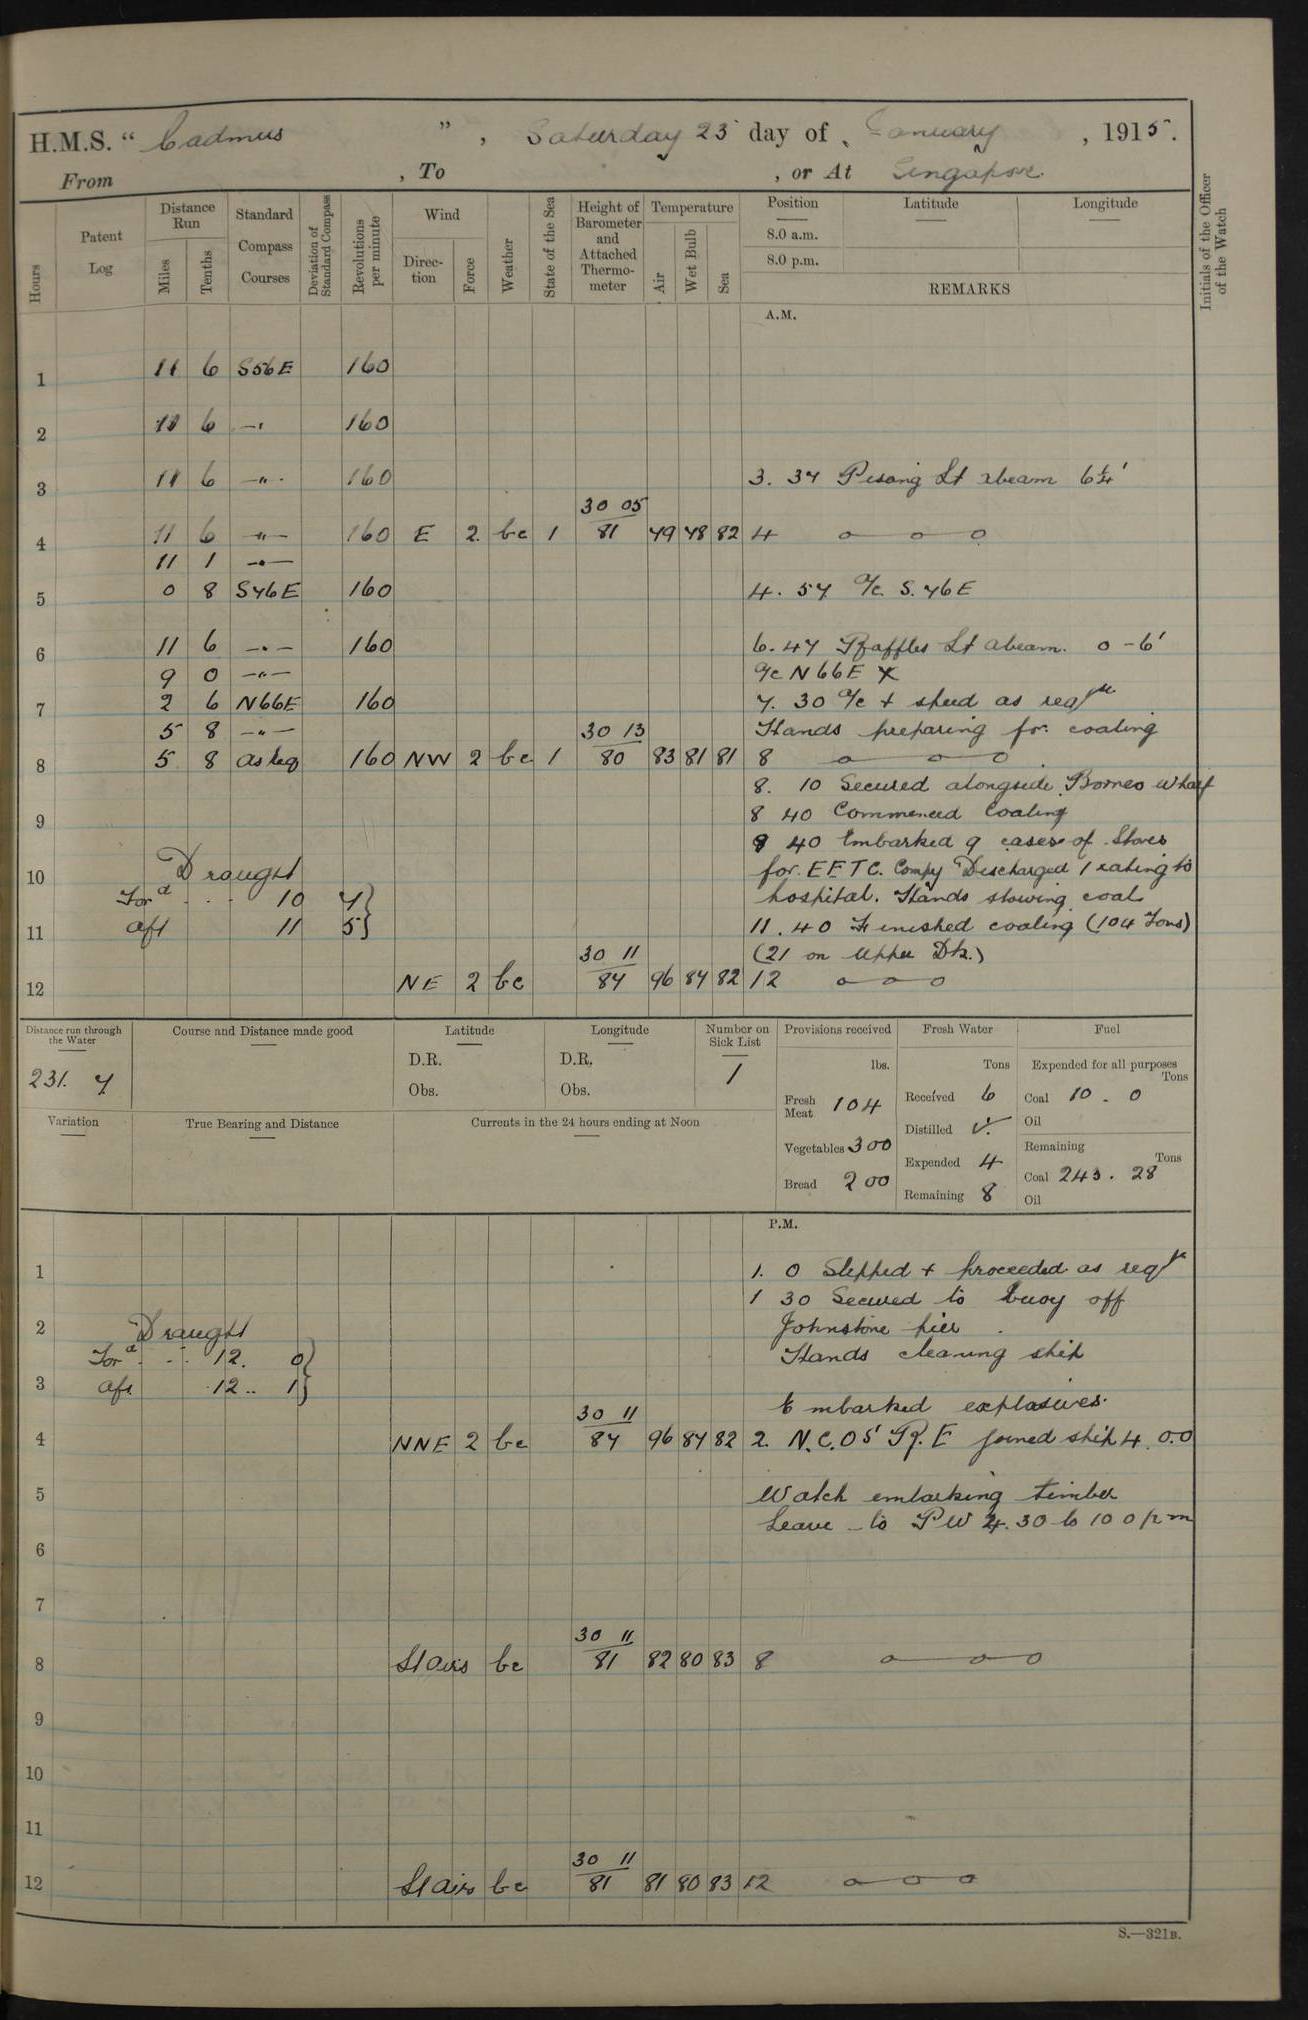 H.M.S. "Cadmus", Saturday 23 day of January, 1915.
From , To , or At Singapore
Hours
Patent Log
Distance Run
Miles
Tenths
Standard Compass Courses
Deviation of Standard Compass
Revolutions per minute
Wind
Direction
Force
Weather
State of the Sea
Height of Barometer and Attached Thermometer
Temperature
Air
Wet Bulb
Sea
Position
8.0 a.m.
8.0 p.m.
Latitude
Longitude
REMARKS
Initials of the Officer of the Watch
A.M.
1 11 6 S56E 160
2 11 6 —"— 160
3 11 6 —"— 160 3. 37 Pisang Lt abeam 6¼'
30 05
4 11 6 —"— 160 E 2 bc 1 81 79 78 82 4 o—o—o
11 1 —"—
5 0 8 S76E 160 4. 57 a/c S. 76 E
6 11 6 —"— 160 6. 47 Raffles Lt abeam. 0 - 6'
9 0 —"— a/c N 66 E
7 2 6 N66E 160 7. 30 a/c + speed as req^d
5 8 —"— 30 13 Hands preparing for coaling
8 5 8 as req 160 NW 2 bc 1 80 83 81 81 8 o—o—o
8. 10 Secured alongside Borneo wharf
9 8 40 Commenced Coaling
9 40 Embarked 9 cases of Stores
10 Draught for E E T C. Compy Discharged 1 rating to
For^d 10 7 hospital. Hands stowing coal
11 aft 11 5 11. 40 Finished coaling (104 Tons)
30 11 (21 on Upper Dk.)
12 NE 2 bc 84 96 84 82 12 o—o—o
Distance run through the Water
231. 7
Course and Distance made good
Latitude
D.R.
Obs.
Longitude
D.R.
Obs.
Number on Sick List
1
Variation
True Bearing and Distance
Currents in the 24 hours ending at Noon
Provisions received
lbs.
Fresh Meat 104
Vegetables 300
Bread 200
Fresh Water
Tons
Received 6
Distilled
Expended 4
Remaining 8
Fuel
Expended for all purposes
Tons
Coal 10 . 0
Oil
Remaining
Tons
Coal 243 . 28
Oil
P.M.
1 1. 0 Slipped + proceeded as req^d
1 30 Secured to buoy off
2 Draught Johnstone pier
For^d 12. 0 Hands cleaning ship
3 aft 12.. 1
30 11 Embarked explosives.
4 NNE 2 bc 84 96 84 82 2. N.C.Os R.E joined ship 4 o.o
5 Watch embarking timber
Leave to P W 4. 30 to 10 0 p m
6
7
30 11
8 Lt airs bc 81 82 80 83 8 o—o—o
9
10
11
30 11
12 Lt airs bc 81 81 80 83 12 o—o—o
S.—321B.